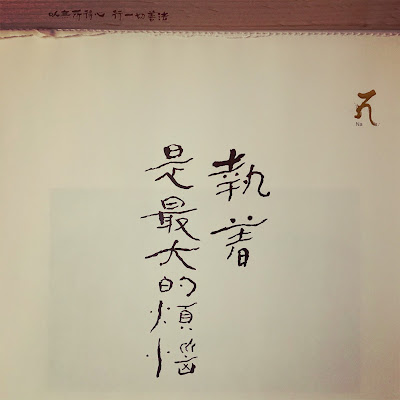 以無所得心 行一切善法
Na
執著
是最大的煩惱